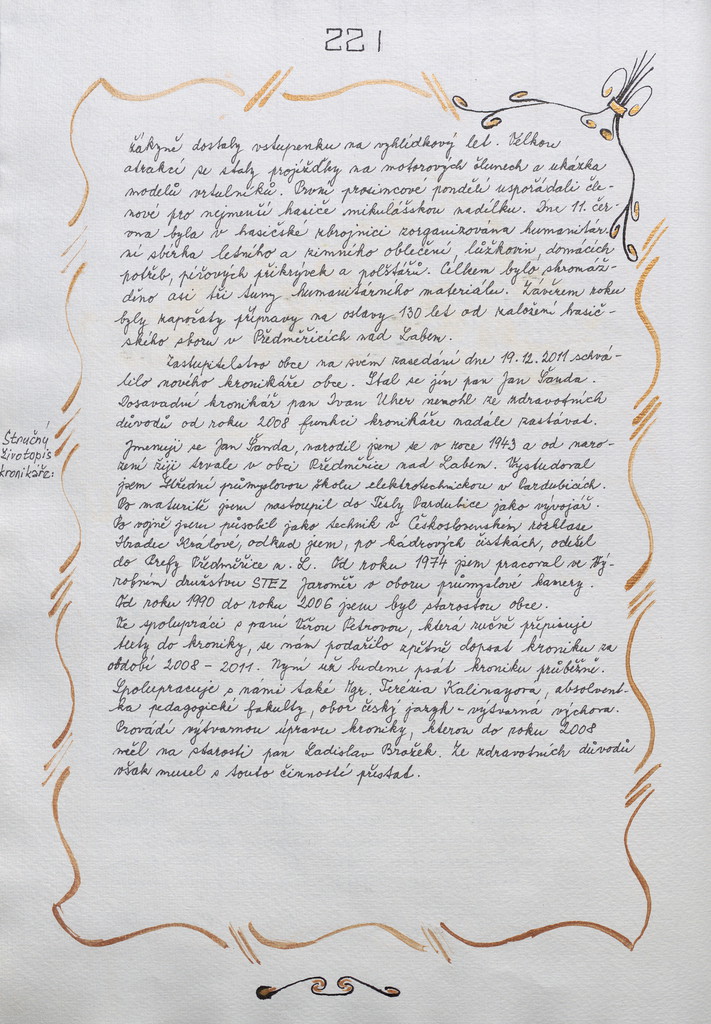 221
žákyně dostaly vstupenku na vyhlídkový let. Velkou
atrakcí se staly projížďky na motorových člunech a ukázka
modelů vrtulníků. První prosincové pondělí uspořádali čle-
nové pro nejmenší hasiče mikulášskou nadílku. Dne 11. čer-
vna byla v hasičské zbrojnici zorganizována humanitár-
ní sbírka letního a zimního oblečení, lůžkovin, domácích
potřeb, péřových přikrývek a polštářů. Celkem bylo shromáž-
děno asi tři tuny humanitárního materiálu. Závěrem roku
byly započaty přípravy na oslavy 130 let od založení hasič-
ského sboru v Předměřicích nad Labem.
Zastupitelstvo obce na svém zasedání dne 19.12.2011 schvá-
lilo nového kronikáře obce. Stal se jím pan Jan Šanda.
Dosavadní kronikář pan Ivan Uher nemohl ze zdravotních
důvodů od roku 2008 funkci kronikáře nadále zastávat.
Stručný
životopis
kronikáře:
Jmenuji se Jan Šanda, narodil jsem se v roce 1943 a od naro-
zení žiji trvale v obci Předměřice nad Labem. Vystudoval
jsem Střední průmyslovou školu elektrotechnickou v Pardubicích.
Po maturitě jsem nastoupil do Tesly Pardubice jako vývojář.
Po vojně jsem působil jako technik v Československém rozhlase
Hradec Králové, odkud jsem, po kádrových čistkách, odešel
do Prefy Předměřice n. L. Od roku 1974 jsem pracoval ve Vý-
robním družstvu STEZ Jaroměř v oboru průmyslové kamery.
Od roku 1990 do roku 2006 jsem byl starostou obce.
Ve spolupráci s paní Věrou Petrovou, která ručně přepisuje
texty do kroniky, se nám podařilo zpětně dopsat kroniku za
období 2008 - 2011. Nyní už budeme psát kroniku průběžně.
Spolupracuje s námi také Mgr. Terezia Kalinayova, absolvent-
ka pedagogické fakulty, obor český jazyk - výtvarná výchova.
Provádí výtvarnou úpravu kroniky, kterou do roku 2008
měl na starosti pan Ladislav Brožek. Ze zdravotních důvodů
však musel s touto činností přestat.